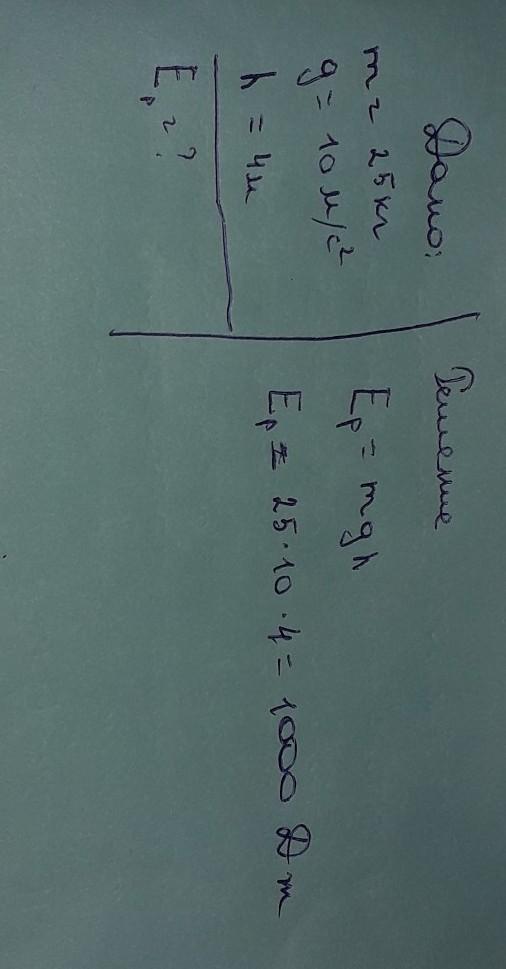 Дано:
m = 25 кг
g = 10 м/с²
h = 4м
Eₚ = ?
Решение
Eₚ = mgh
Eₚ = 25·10·4 = 1000 Дж